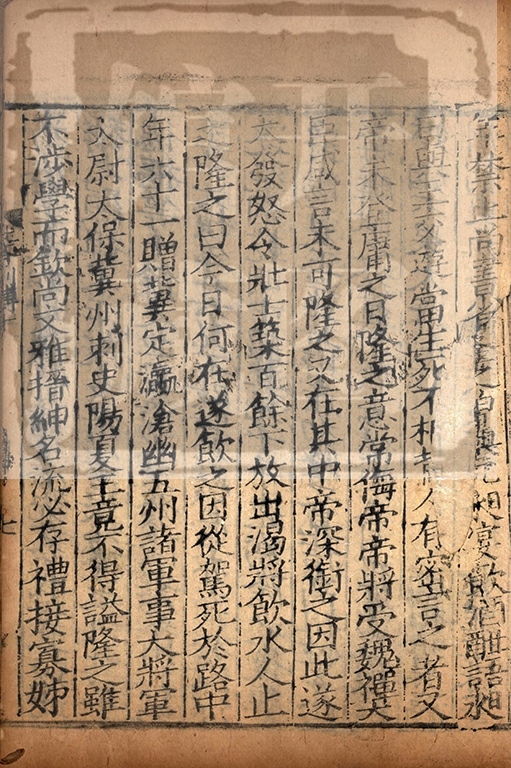 禁止尚書省之曾與元昶宴飲酒酣語昶
曰與王交遊當生死不相背人有密言之者又
帝未登庸之日隆之意常侮帝帝將受魏禪大
臣咸言未可隆之又在其中帝深銜之因此遂
大發怒令壯士築百餘下放出渴將飲水人止
之隆之曰今日何在遂飲之因從駕死於路中
年六十一贈冀定瀛滄幽五州諸軍事大將軍
太尉太保冀州刺史陽夏王竟不得諡隆之雖
不涉學而欽尚文雅搢紳名流必存禮接寡姊
七